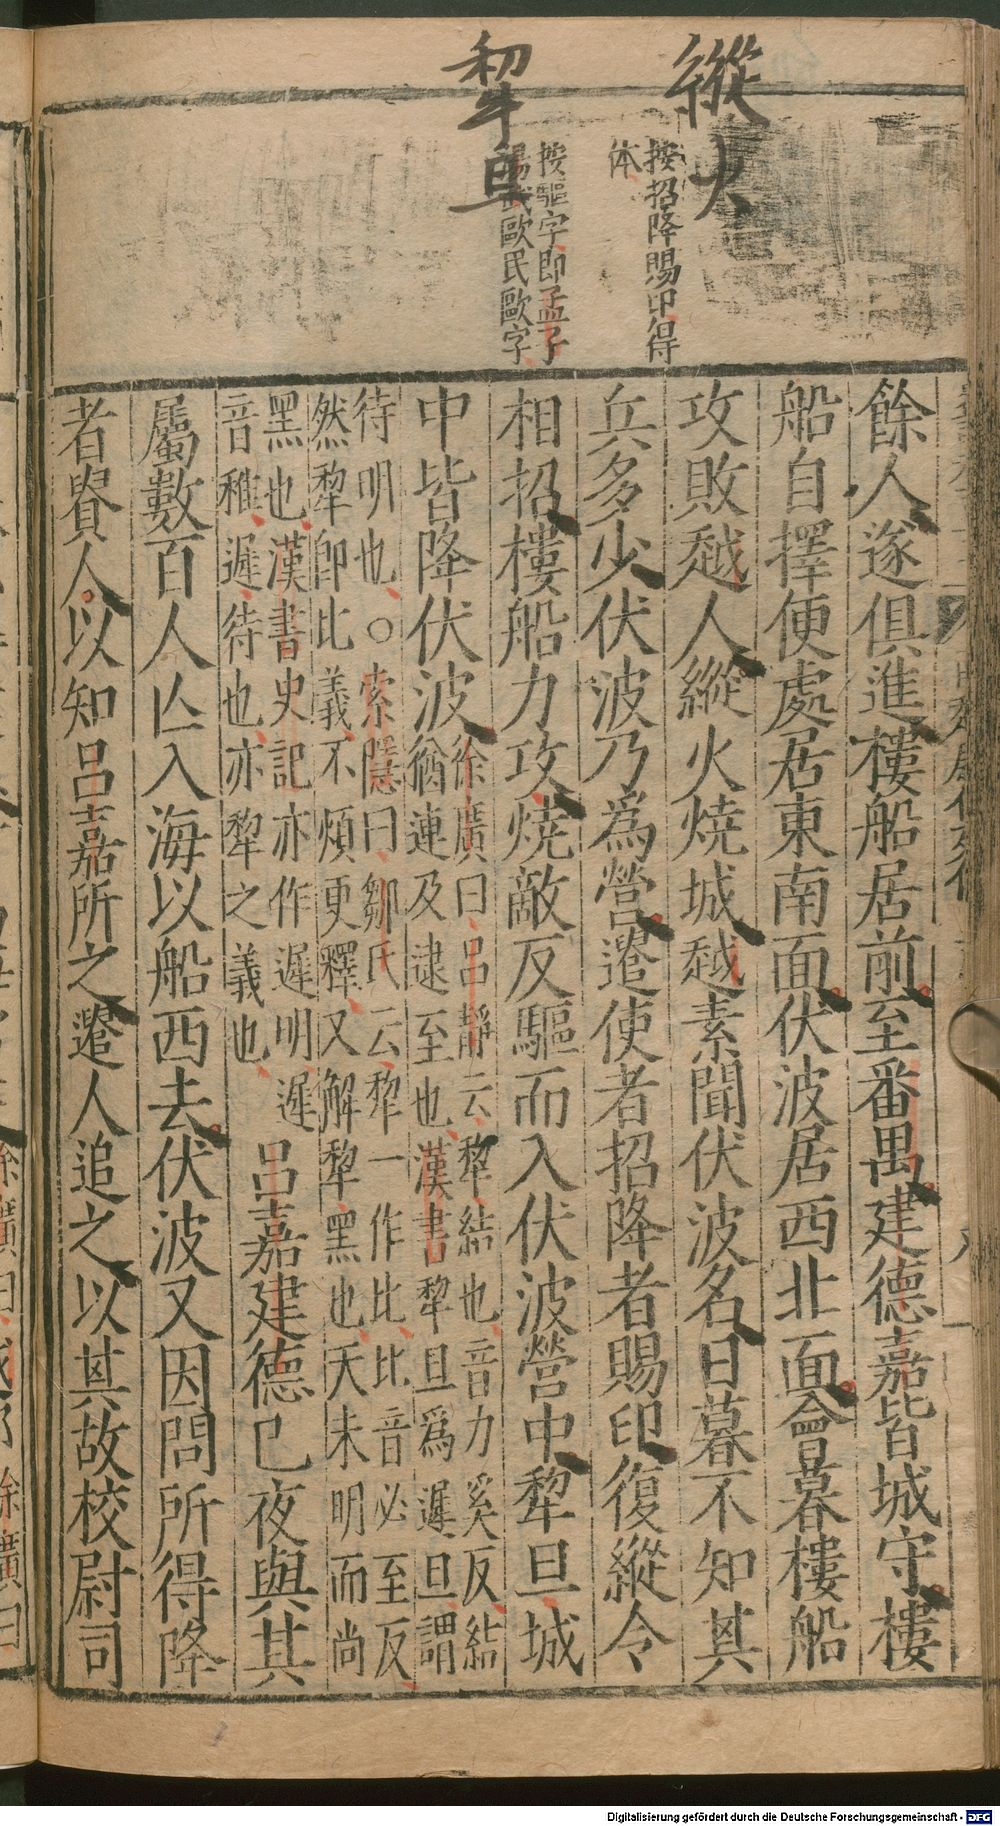 縱火
犂旦
按招降賜印得
体
按驅字即孟子
湯武歐民歐字
餘人遂俱進樓船居前至番禺建德嘉皆城守樓
船自擇便處居東南面伏波居西北面會暮樓船
攻敗越人縱火燒城越素聞伏波名日暮不知其
兵多少伏波乃爲營遣使者招降者賜印復縱令
相招樓船力攻燒敵反驅而入伏波營中犂旦城
中皆降伏波
徐廣曰呂靜云犂結也音力奚反結
猶連及逮至也漢書犂旦爲遲旦謂
待明也○索隱曰鄒氏云犂一作比比音必至反
然犂即比義不煩更釋又解犂黑也天未明而尚
黑也漢書史記亦作遲明遲
音稚遲待也亦犂之義也
呂嘉建德已夜與其
屬數百人亾入海以船西去伏波又因問所得降
者貴人以知呂嘉所之遣人追之以其故校尉司
Digitalisierung gefördert durch die Deutsche Forschungsgemeinschaft - DFG